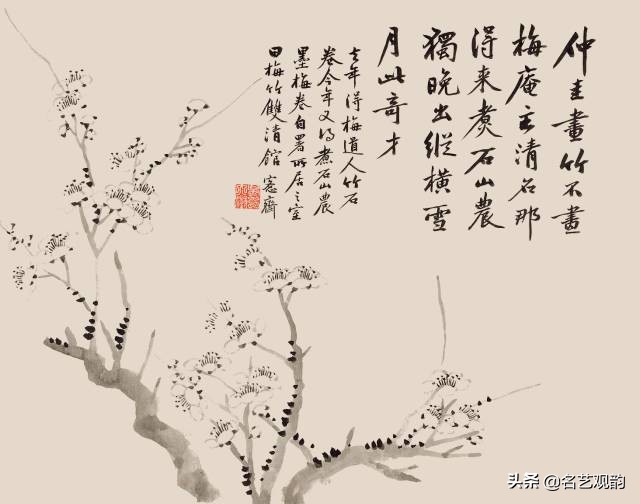 仲圭畫竹不畫
梅庵主清名那
得来煑石山農
獨晚出縱橫雪
月此奇才
去年得梅道人竹石
卷今年又得煮石山農
墨梅卷自署所居之室
曰梅竹雙清館 愙齋
头条 @名艺观韵